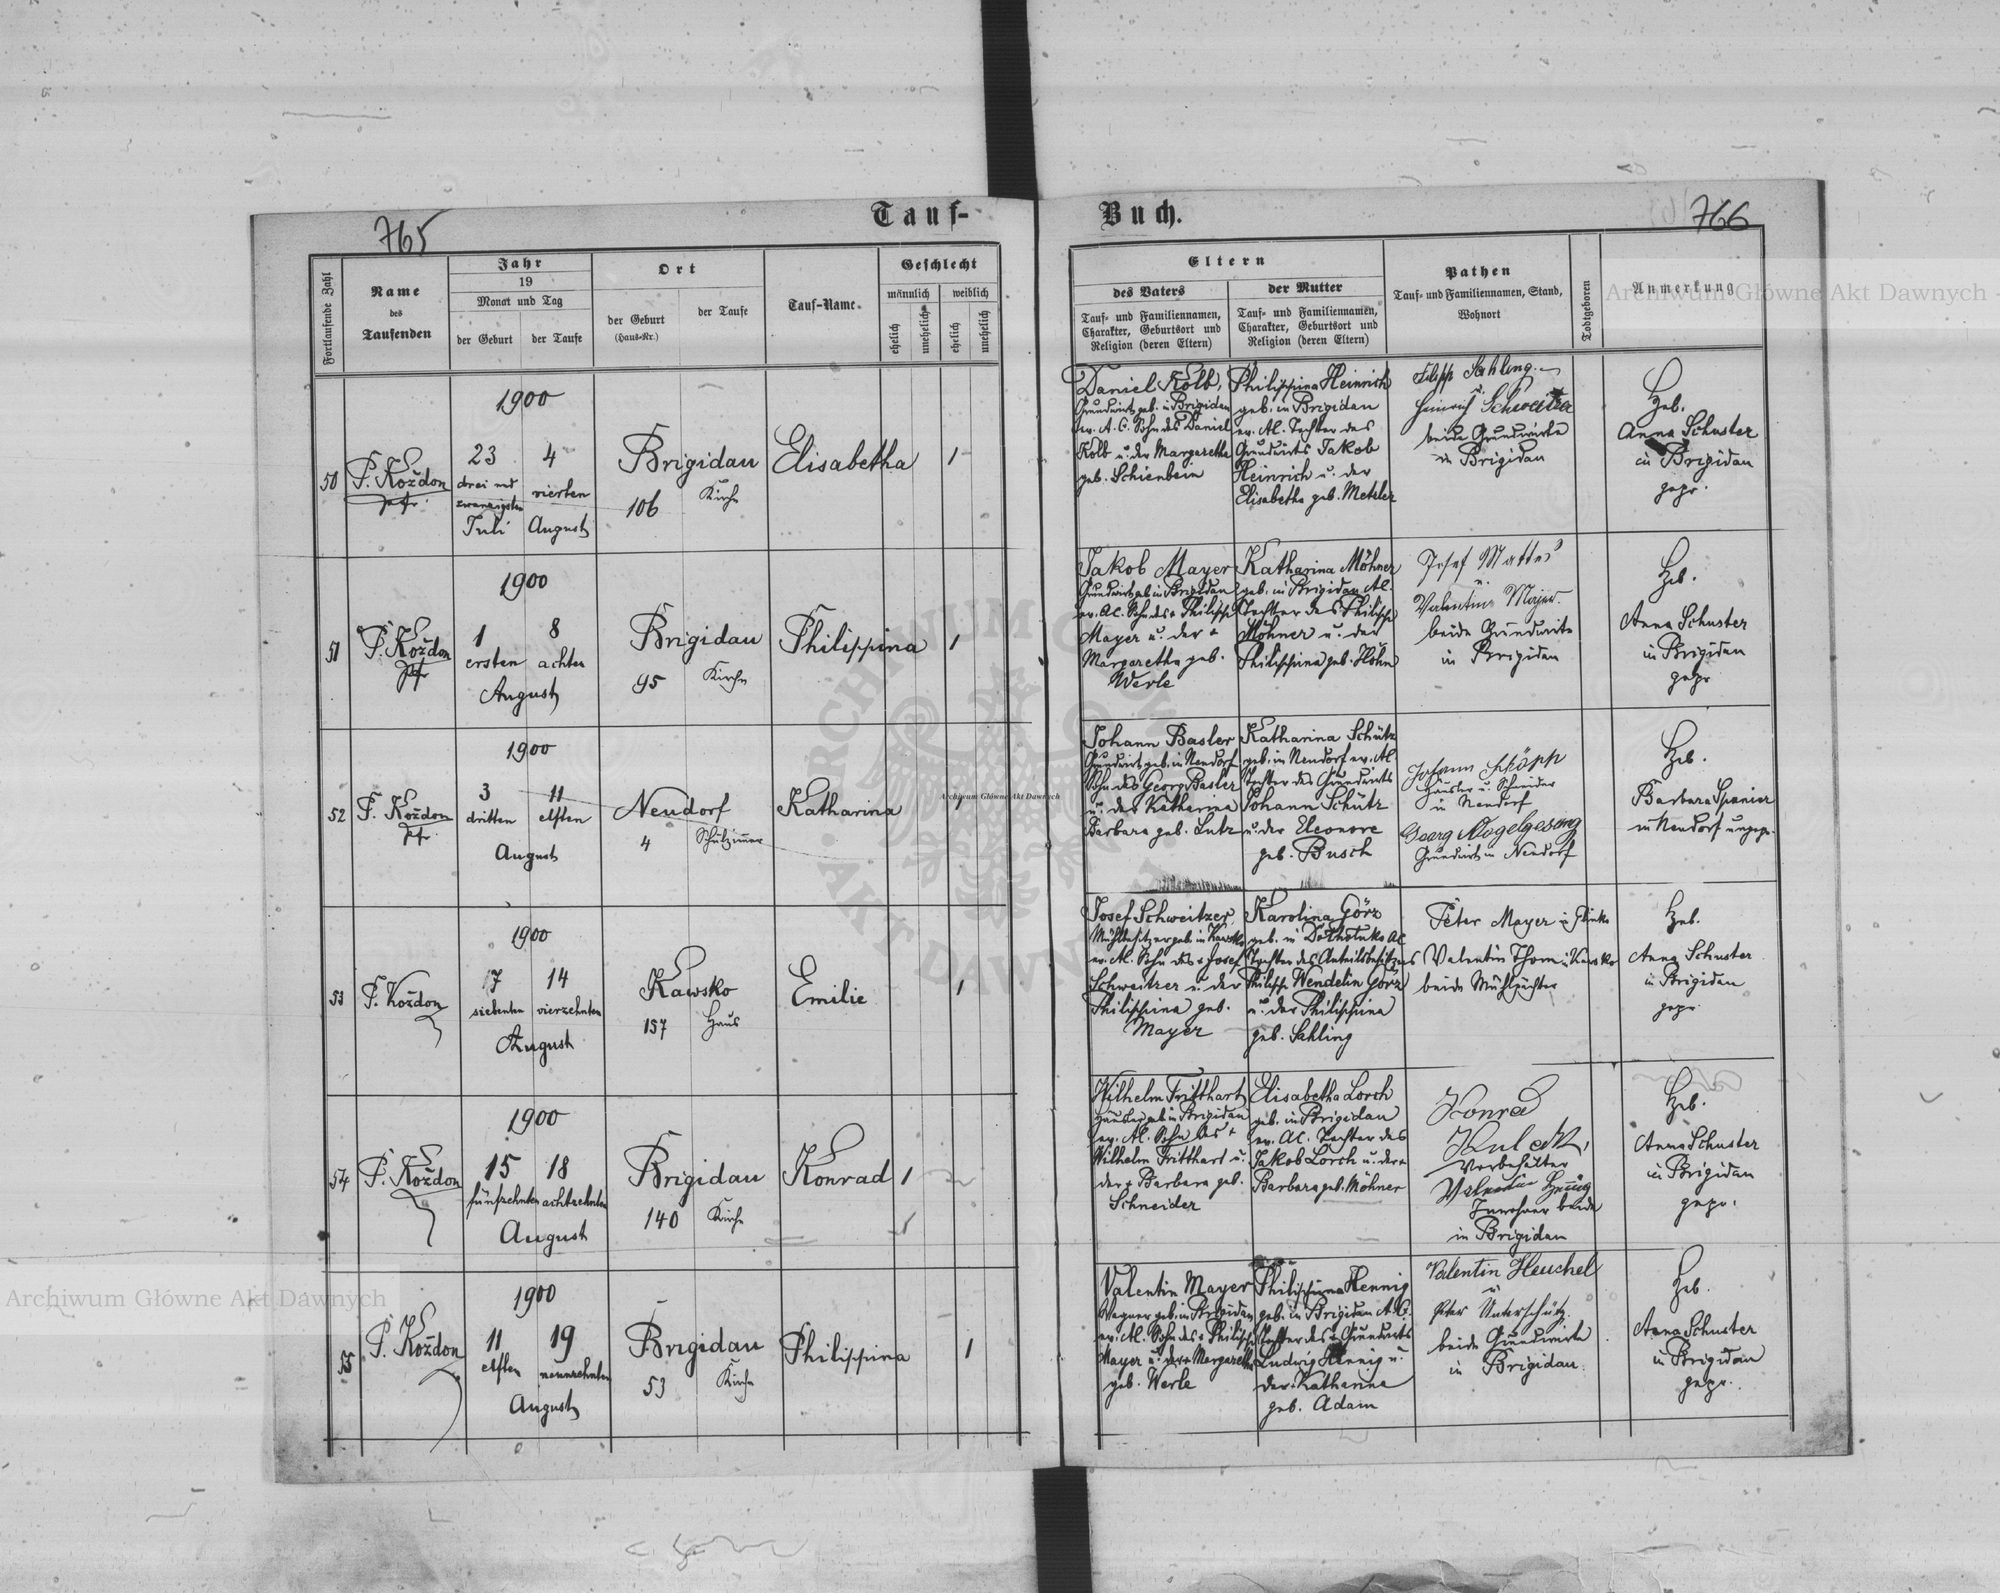 765
Tauf-
Buch.
766
Fortlaufende Zahl
Name
des
Taufenden
Jahr
19
Monat und Tag
der Geburt
der Taufe
Ort
der Geburt
(Haus-Nr.)
der Taufe
Tauf-Name
Geschlecht
männlich
weiblich
ehelich
unehelich
ehelich
unehelich
Eltern
des Vaters
Tauf- und Familiennamen,
Charakter, Geburtsort und
Religion (deren Eltern)
der Mutter
Tauf- und Familiennamen,
Charakter, Geburtsort und
Religion (deren Eltern)
Pathen
Tauf- und Familiennamen, Stand,
Wohnort
Todtgeboren
Anmerkung
50
P. Koždon
Pfr.
1900
23
drei und
zwanzigsten
Juli
4
vierten
August
Brigidau
106
Kirche
Elisabetha
1
Daniel Kolb,
Grundwirt geb. in Brigidau
ev. A. C. Sohn des Daniel
Kolb u. der Margaretha
geb. Schienbein
Philippina Heinrich
geb. in Brigidau
ev. AC. Tochter des
Grundwirts Jakob
Heinrich u. der
Elisabetha geb. Metzler
Filipp Sahling
u.
Heinrich Schweitzer
beide Grundwirte
in Brigidau
Heb.
Anna Schuster
in Brigidau
gepr.
51
P. Koždon
Pfr
1900
1
ersten
8
achten
August
Brigidau
95
Kirche
Philippina
1
Jakob Mayer
Grundwirt geb in Brigidau
ev. AC. Sohn des + Philipp
Mayer u. der +
Margaretha geb.
Werle
Katharina Möhner
geb. in Brigidau AC.
Tochter des Philipp
Möhner u. der
Philippina geb. Höhn
Josef Mattes
u.
Valentin Majer.
beide Grundwirte
in Brigidau
Heb.
Anna Schuster
in Brigidau
gepr
52
P. Koždon
Pfr.
1900
3
dritten
11
elften
August
Neudorf
4
Schulzimmer
Katharina
1
Johann Basler
Grundwirt geb. in Neudorf
Sohn des Georg Basler
u. der Katharina
Barbara geb. Lutz
Katharina Schütz
geb. in Neudorf ev. AC.
Tochter des Grundwirts
Johann Schütz
u. der Eleonore
geb. Busch
Johann Schöpp
Häusler u. Schneider
in Neudorf
Georg Voglgesang
Grundwirt in Neudorf
Heb.
Barbara Spanier
in Neudorf ungepr.
53
P. Koždon
1900
7
siebenten
14
vierzehnten
August
Kawsko
157
Haus
Emilie
1
Josef Schweitzer
Mühlbesitzer geb. in Kawsko
ev. AC. Sohn des + Josef
Schweitzer u. der
Philippina geb.
Mayer
Karolina Görz
geb. in AC
Tochter des Anteilsbesitzers
Philipp Wendelin Görz
u. der Philippina
geb. Sahling
Peter Mayer in
Valentin Thom in Kawsko
beide Mühlpächter
Heb.
Anna Schuster
in Brigidau
gepr
54
P. Koždon
1900
15
fünfzehnten
18
achtzehnten
August
Brigidau
140
Kirche
Konrad
1
Wilhelm Tritthart
Häusler geb in Brigidau
ev. AC. Sohn des +
Wilhelm Tritthart u.
der + Barbara geb.
Schneider
Elisabetha Lorch
geb. in Brigidau
ev. AC. Tochter des
Jakob Lorch u. der +
Barbara geb. Möhner
Konrad
Vorbehälter
Valentin Hennig
Inwohner beide
in Brigidau
Heb.
Anna Schuster
in Brigidau
gepr.
55
P. Koždon
1900
11
elften
19
neunzehnten
August
Brigidau
53
Kirche
Philippina
1
Valentin Mayer
Wagner geb. in Brigidau
ev. AC. Sohn des + Philipp
Mayer u. der + Margaretha
geb. Werle
Philippina Hennig
geb. in Brigidau A. C.
Tochter des + Grundwirts
Ludwig Hennig u.
der Katharina
geb. Adam
Valentin Heuchel
u
Peter Unterschütz
beide Grundwirte
in Brigidau
Heb.
Anna Schuster
in Brigidau
gepr.
Archiwum Główne Akt Dawnych
Archiwum Główne Akt Dawnych
Archiwum Główne Akt Dawnych
ARCHIWUM GŁÓWNE AKT DAWNYCH